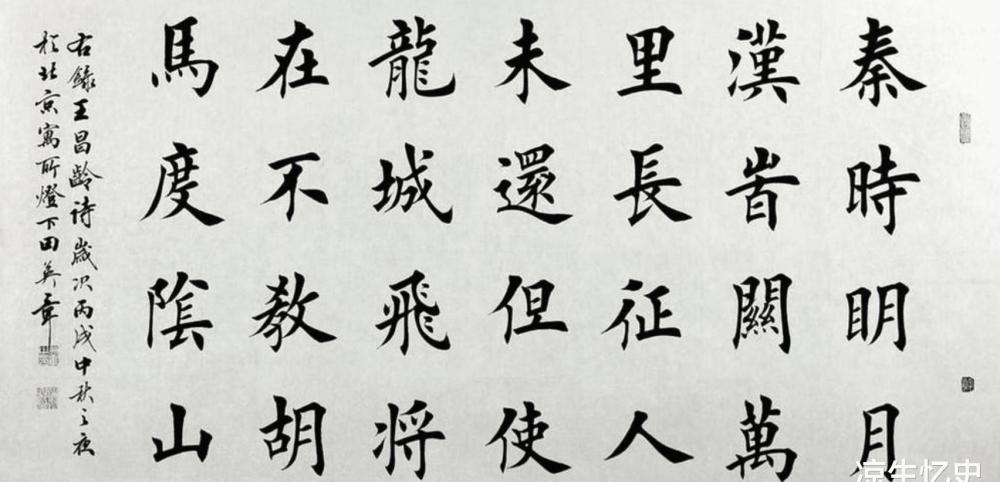 秦時明月
漢旹關萬
里長征人
未還但使
龍城飛将
在不教胡
馬度隂山
右錄王昌齡诗歲次丙戌中秋之夜
於北京寓所燈下田英章
凉生忆史